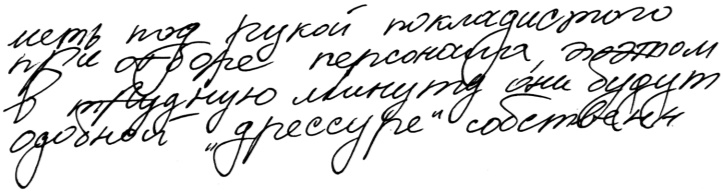 меть под рукой покладистого
при отборе персонала, поэтом
в трудную минуту они будут
одобной "дрессуре" собственн